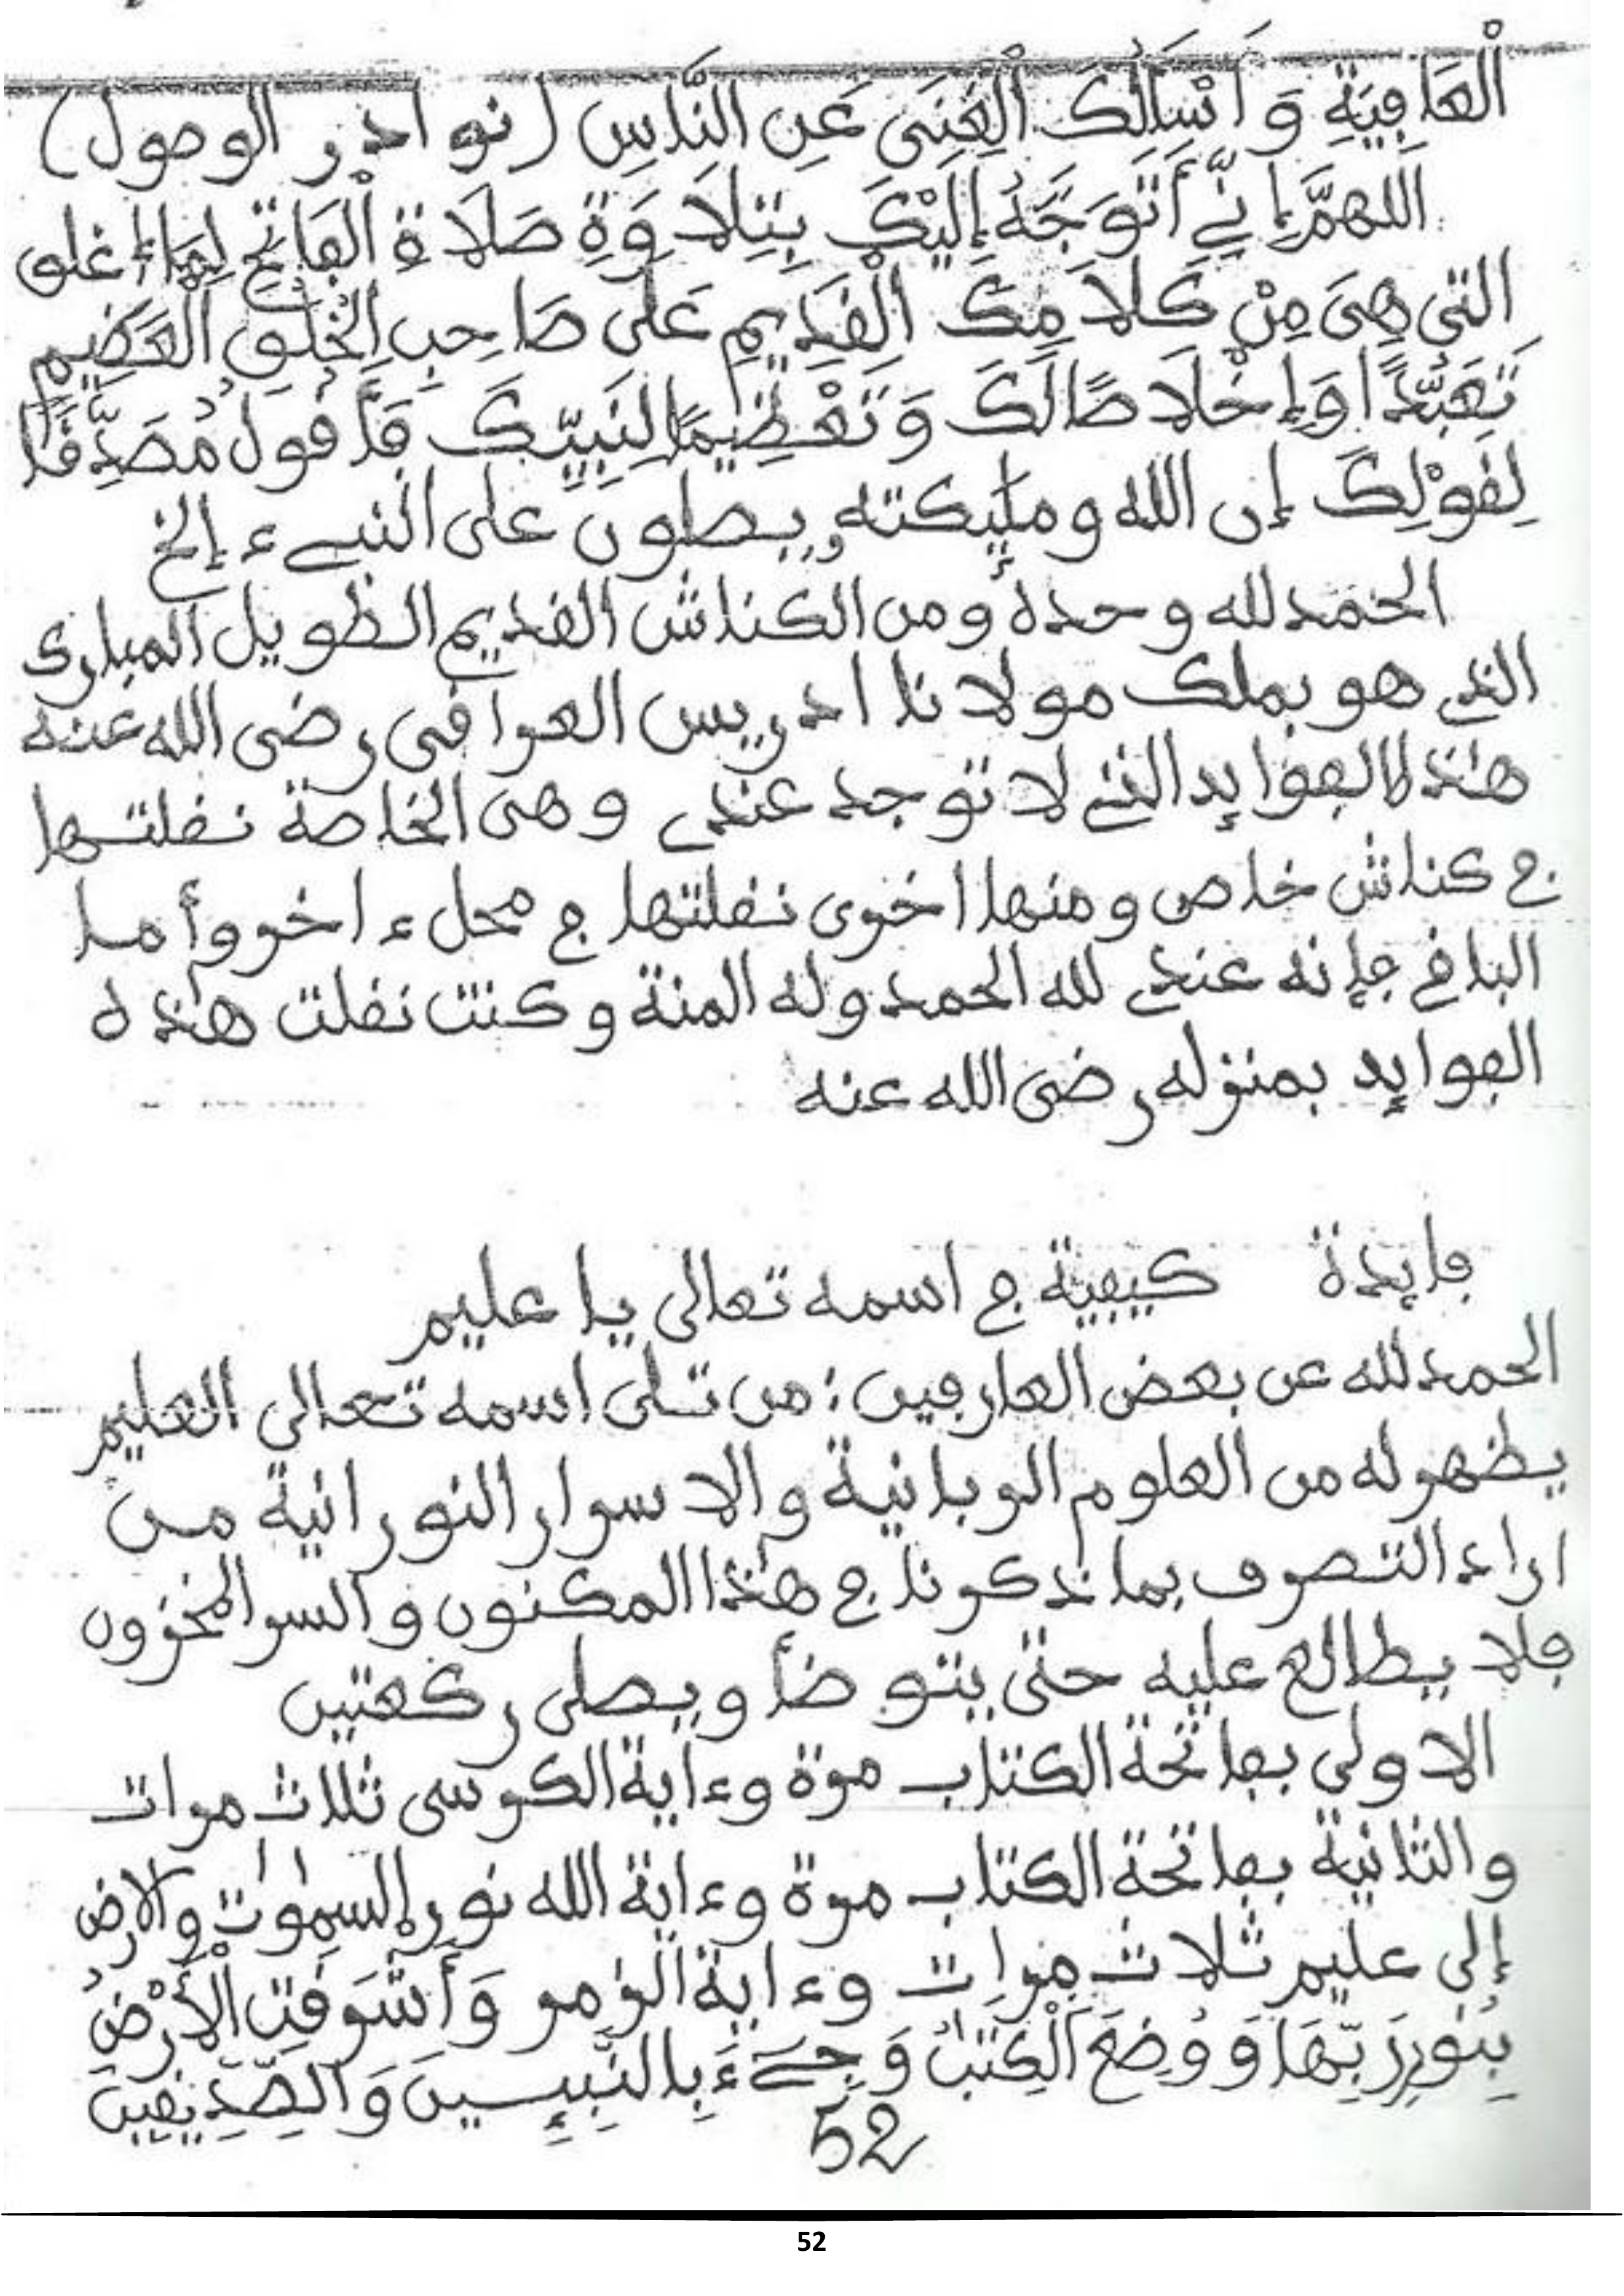 الْعَافِيَةِ وَأَسْأَلُكَ الْغِنَى عَنِ النَّاسِ (نوادر الوصول)
اللهمَّ إِنِّي أَتَوَجَّهُ إِلَيْكَ بِتِلَاوَةِ صَلَاةِ الْفَاتِحِ لِمَا أغلق
التي هِيَ مِنْ كَلَامِكَ الْقَدِيمِ عَلَى صَاحِبِ الْخُلُقِ الْعَظِيمِ
تَعَبُّدًا وَإِخْلَاصًا لَكَ وَتَعْظِيمًا لِنَبِيِّكَ فَأَقُولُ مُصَدِّقًا
لِقَوْلِكَ إن الله وملئكته يصلون على النبيء إلخ
الحمد لله وحده ومن الكناش القديم الطويل المبارك
الذي هو بملك مولانا ادريس العراقي رضي الله عنه
هذه الفوايد التي لا توجد عندي وهي الخاصة نقلتها
في كناش خاص ومنها اخرى نقلتها في محل ءاخر وأما
الباقي فإنه عندي لله الحمد وله المنة وكنت نقلت هذه
الفوايد بمنزله رضي الله عنه
فايدة كيفية في اسمه تعالى يا عليم
الحمد لله عن بعض العارفين: من تلى اسمه تعالى العليم
يظهر له من العلوم الربانية والاسرار النورانية من
اراد التصرف بما ذكرنا في هذا المكنون والسر المخزون
فلا يطالع عليه حتى يتوضأ ويصلي ركعتين
الاولى بفاتحة الكتاب مرة وءاية الكرسي ثلاث مرات
والثانية بفاتحة الكتاب مرة وءاية الله نور السموات والارض
إلى عليم ثلاث مرات وءاية الزمر وَأَشْرَقَتِ الْأَرْضُ
بِنُورِ رَبِّهَا وَوُضِعَ الْكِتَبُ وَجِےءَ بِالنَّبِيِينَ وَالصِّدِّيقِينَ
52
52